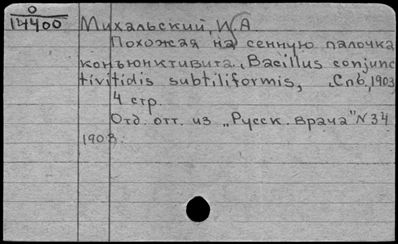 0
14400
Михальский, И.А
Похожая на сенную палочка
конъюнктивита, Bacillus conjunc
tivitidis subtiliformis, Спб, 1903
4 стр.
Отд. отт. из „Русск. врача" N 34
1903.